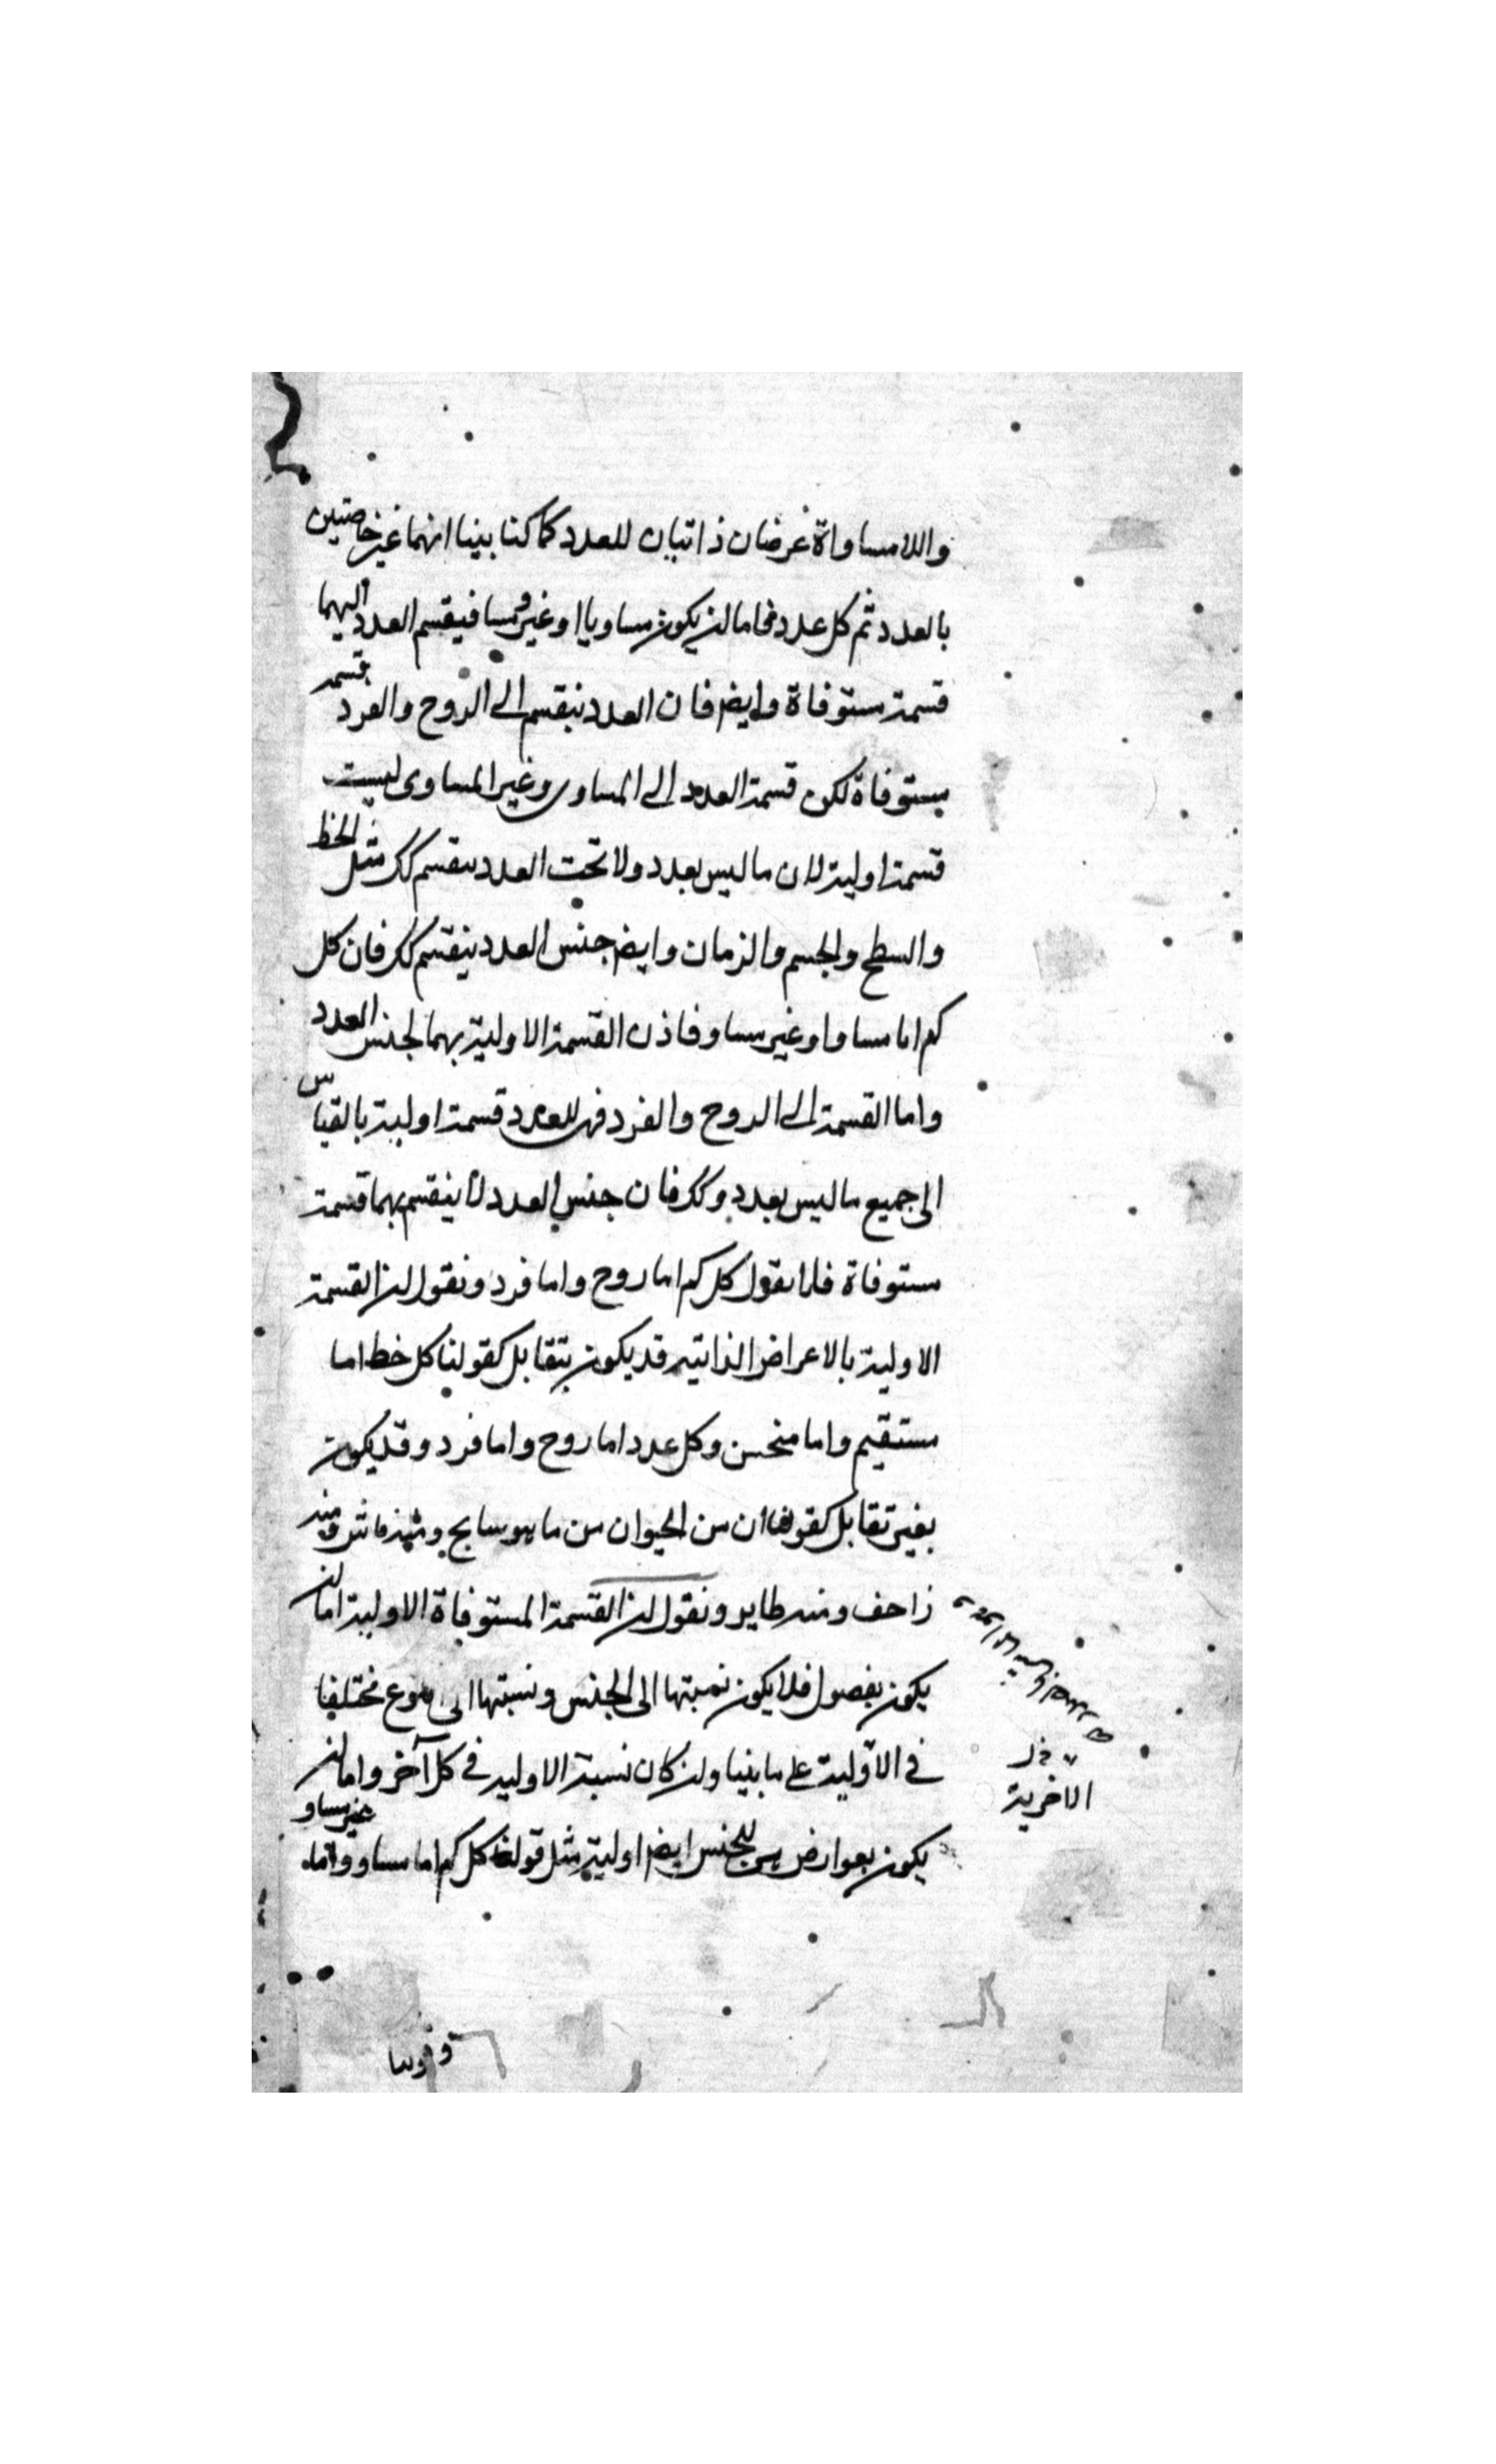 واللامساواة عرضان ذاتيان للعدد كما كنا بينا انهما غير خاصتين
بالعدد ثم كل عدد فاما لن يكون مساويا او غير مساو فيقسم العدد اليهما
قسمة مستوفاة وايض فان العدد ينقسم الى الزوج والفرد قسمة
مستوفاة لكن قسمة العدد الى المساوى وغير المساوى ليست
قسمة اولية لان ما ليس بعدد ولا تحت العدد ينقسم كك مثل الخط
والسطح والجسم والزمان وايض جنس العدد ينقسم كك فان كل
كم اما مساو او غير مساو فاذن القسمة الاولية بهما لجنس العدد
واما القسمة الى الروح والفرد فهى للعدد قسمة اولية بالقياس
الى جميع ما ليس بعدد وكك فان جنس العدد لا ينقسم بهما قسمة
مستوفاة فلا يقول كل كم اما روح واما فرد ونقول لن القسمة
الاولية بالاعراض الذاتية قد يكون بتقابل كقولنا كل خط اما
مستقيم واما منحن وكل عدد اما روح واما فرد وقد يكون
بغير تقابل كقولنا ان من الحيوان من ما هو سابح ومنه ماش ومنه
زاحف ومنه طاير ونقول لن القسمة المستوفاة الاولية اما لن
يكون بفصول فلا يكون نسبتها الى الجنس ونسبتها الى نوع مختلفا
فى الاولية على ما بينا ولن كان نسبة الاولية فى كل آخر واما لن
يكون بعوارض للجنس ايض اولية مثل قولنا كل كم اما مساو واما غير مساو
الاخرية